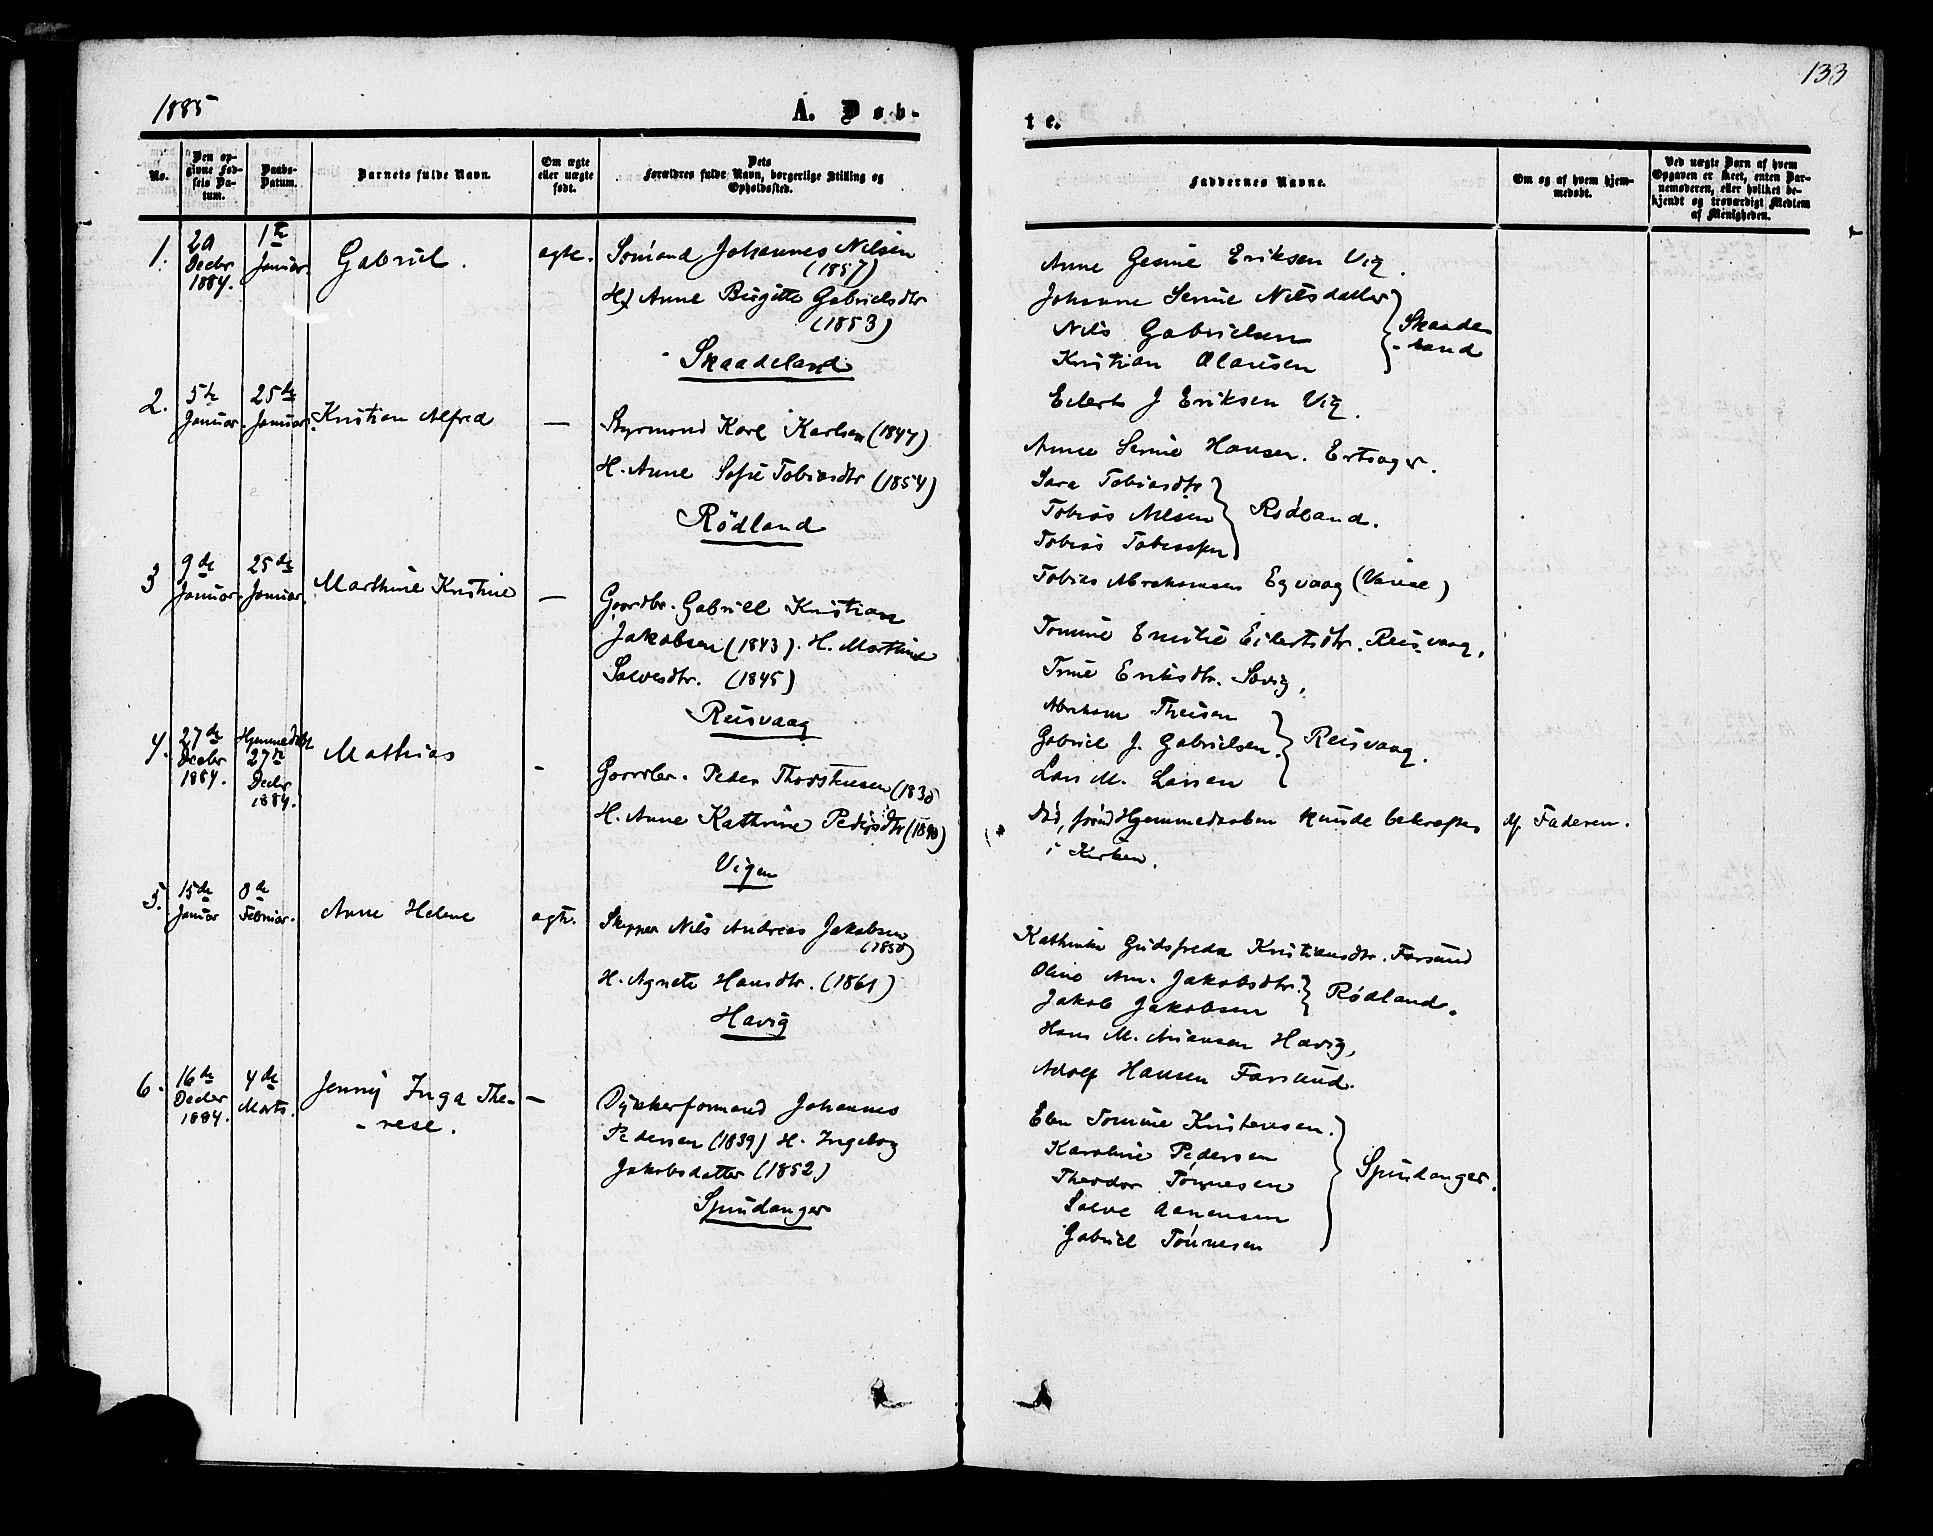 1885
A. Døb-
No.
Den op-
givne Fød-
sels Da-
tum.
Daabs-
Datum.
Barnets fulde Navn.
Om ægte
eller uægte
født.
Dets
Forældres fulde Navn, borgerlige Stilling og
Opholdssted.
1.
Decbr
1884.
1te
Januar.
Gabriel.
ægte.
Sømand Johannes Nilsen
(1857)
H. Anne Birgitte Gabrielsdtr
(1853)
Skaadeland
2.
5te
Januar.
25de
Januar.
Kristian Alfred
—
Styrmand Karl Karlsen (1847)
H. Anne Sofie Tobiasdtr (1854)
Rødland
3
9de
Januar.
25de
Januar.
Marthine Kristine
—
Gaardbr. Gabriel Kristian
Jakobsen (1843). H. Marthine
Salvesdtr. (1845)
Reisvaag
4.
27de
Decbr
1884.
Hjemmedøbt
27de
Decbr
1884.
Mathias
-
Gaardbr. Peder Thorstensen
H. Anne Kathrine Pedersdtr
Vigen
5.
15de
Januar
8de
Februar.
Anne Helene
ægte.
Skipper Nils Andreas Jakobsen
(1850)
H. Agnete Hansdtr. (1861)
Havig
6.
16de
Decbr
1884.
4de
Marts.
Jenny Inga The-
-rese.
—
Dykkerformand Johannes
Pedersen (1839) H. Ingeborg
Jakobsdatter (1852)
Spindanger
133
te.
Faddernes Navne.
Om og af hvem hjem-
medøbt.
Ved uægte Børn af hvem
Opgaven er skeet, enten Bar-
nemoderen, eller hvilket be-
kjendt og troværdigt Medlem
af Menigheden.
Anne Gesine Eriksen Vig.
Johanne Serine Nilsdatter
Nils Gabrielsen
Kristian Olausen
Skaade
-land
Eilert J Eriksen Vig.
Anne Serine Hansen. Ertsager.
Sara Tobiasdtr
Tobias Nilsen
Tobias Tobiassen
Rødland.
Tobias Abrahamsen Egvaag (Vanse)
Tomine Emilie Eilertsdtr. Reisvaag,
Trine Eriksdtr. Søvig,
Abraham Theisen
Gabriel J. Gabrielsen.
Lars M. Larsen
Reisvaag.
Død, førend Hjemmedaaben kunde bekræftes
i Kirken.
Af Faderen.
Kathinka Gudsfreda Kristiansdtr. Farsund
Oline Am. Jakobsdtr.
Jakob Jakobsen
Rødland.
Hans M. Ariansen Havig,
Adolf Hansen Farsund.
Elen Tomine Kristensen.
Karoline Pedersen
Theodor Tønnesen
Salve Aanensen
Gabriel Tønnesen
Spindanger.